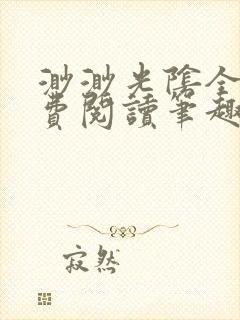 渺渺光陰全
費閱讀筆趣
寂然